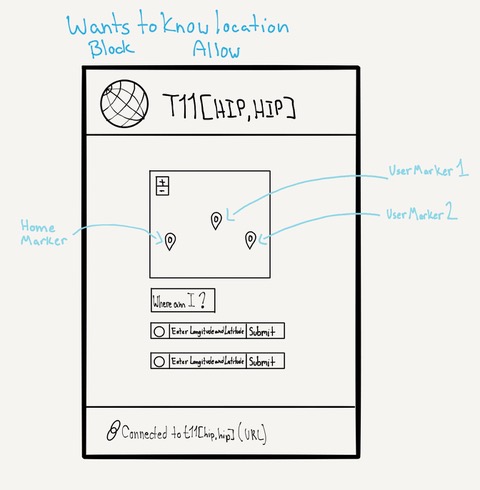 Wants to Know location
Block Allow
T11[HIP,HIP]
+
-
UserMarker 1
UserMarker 2
Home
Marker
Where am I ?
Enter Longitude and Latitude Submit
Enter Longitude and Latitude Submit
Connected to t11[hip,hip] (URL)